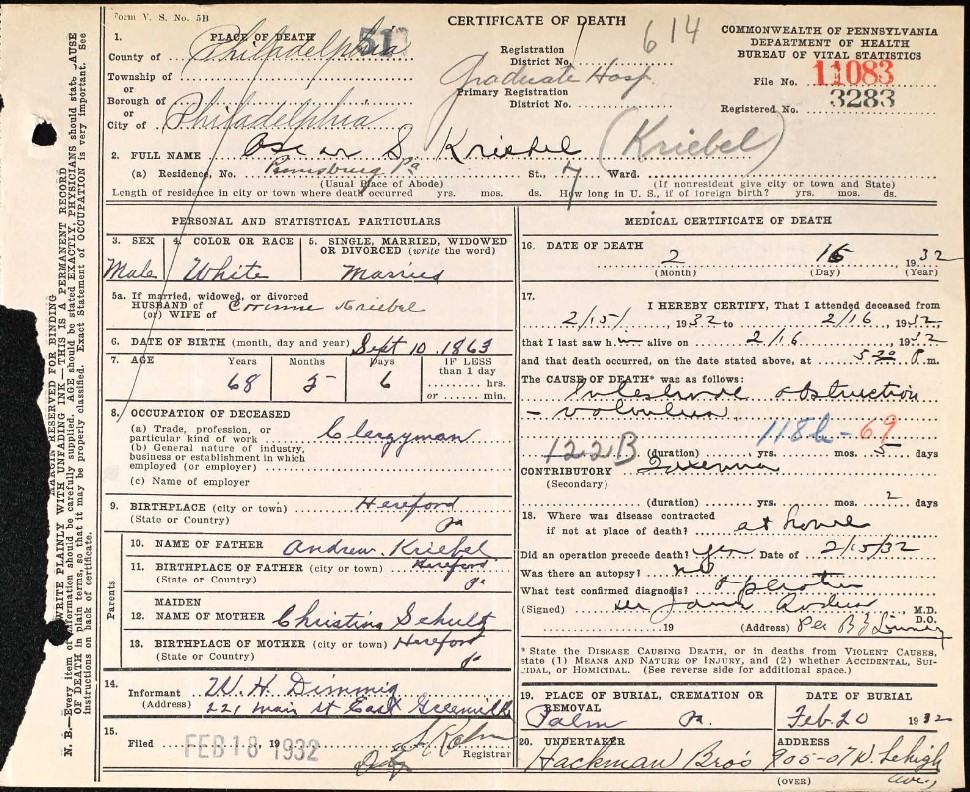 Form V. S. No. 5B
CERTIFICATE OF DEATH
614
COMMONWEALTH OF PENNSYLVANIA
DEPARTMENT OF HEALTH
BUREAU OF VITAL STATISTICS
1. PLACE OF DEATH
County of Philadelphia 51
Registration District No.
File No. 11083
Township of
or
Graduate Hosp.
Primary Registration District No.
Registered No. 3283
Borough of
or
City of Philadelphia
2. FULL NAME Oscar S Kriebel (Kriebel)
(a) Residence, No. Pennsburg Pa St., 7 Ward.
(Usual Place of Abode) (If nonresident give city or town and State)
Length of residence in city or town where death occurred yrs. mos. ds. How long in U. S., if of foreign birth? yrs. mos. ds.
PERSONAL AND STATISTICAL PARTICULARS
3. SEX 4. COLOR OR RACE 5. SINGLE, MARRIED, WIDOWED OR DIVORCED (write the word)
Male White Married
5a. If married, widowed, or divorced
HUSBAND of Corinne Kriebel
(or) WIFE of
6. DATE OF BIRTH (month, day and year) Sept 10, 1863
7. AGE Years Months Days IF LESS than 1 day
68 5 6 hrs.
or min.
8. OCCUPATION OF DECEASED
(a) Trade, profession, or particular kind of work Clergyman
(b) General nature of industry, business or establishment in which employed (or employer)
(c) Name of employer
9. BIRTHPLACE (city or town) Hereford
(State or Country) Pa
Parents
10. NAME OF FATHER Andrew Kriebel
11. BIRTHPLACE OF FATHER (city or town) Hereford
(State or Country) Pa
12. MAIDEN NAME OF MOTHER Christina Schultz
13. BIRTHPLACE OF MOTHER (city or town) Hereford
(State or Country) Pa
14. Informant W. H. Dimmig
(Address) 221 Main St East Greenville
15. Filed FEB 18 1932
Registrar
MEDICAL CERTIFICATE OF DEATH
16. DATE OF DEATH
2 16 1932
(Month) (Day) (Year)
17. I HEREBY CERTIFY, That I attended deceased from
2/15/ 1932 to 2/16 1932
that I last saw him alive on 2/16 1932
and that death occurred, on the date stated above, at 5 20 P.m.
The CAUSE OF DEATH* was as follows:
Intestinal obstruction
- volvulus
118b - 69
122B (duration) yrs. mos. 5 days
CONTRIBUTORY
(Secondary)
(duration) yrs. mos. 2 days
18. Where was disease contracted
if not at place of death? at home
Did an operation precede death? Yes Date of 2/15/32
Was there an autopsy? no
What test confirmed diagnosis? operation
(Signed) M.D.
D.O.
19 (Address) Per
* State the DISEASE CAUSING DEATH, or in deaths from VIOLENT CAUSES,
state (1) MEANS AND NATURE OF INJURY, and (2) whether ACCIDENTAL, SUI-
CIDAL, or HOMICIDAL. (See reverse side for additional space.)
19. PLACE OF BURIAL, CREMATION OR REMOVAL DATE OF BURIAL
Palm Pa. Feb 20 1932
20. UNDERTAKER ADDRESS
Hackman Bro's 905-07 N. Lehigh Ave,
(OVER)
MARGIN RESERVED FOR BINDING
WRITE PLAINLY WITH UNFADING INK—THIS IS A PERMANENT RECORD
N. B.—Every item of information should be carefully supplied. AGE should be stated EXACTLY. PHYSICIANS should state CAUSE
OF DEATH in plain terms, so that it may be properly classified. Exact Statement of OCCUPATION is very important. See
instructions on back of certificate.